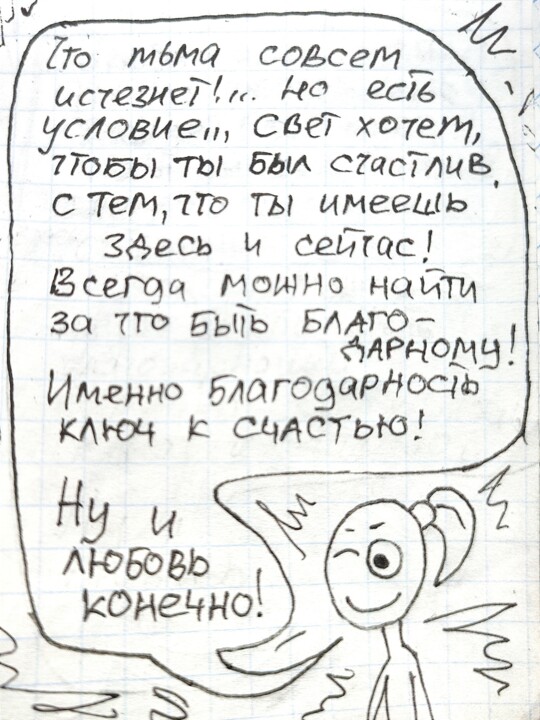 Что тьма совсем
исчезнет!... Но есть
условие,,, Свет хочет,
чтобы ты был счастлив,
с тем, что ты имеешь
здесь и сейчас!
Всегда можно найти
за что быть БЛАГО-
ДАРНОМУ!
Именно благодарность
ключ к счастью!
Ну и
любовь
конечно!